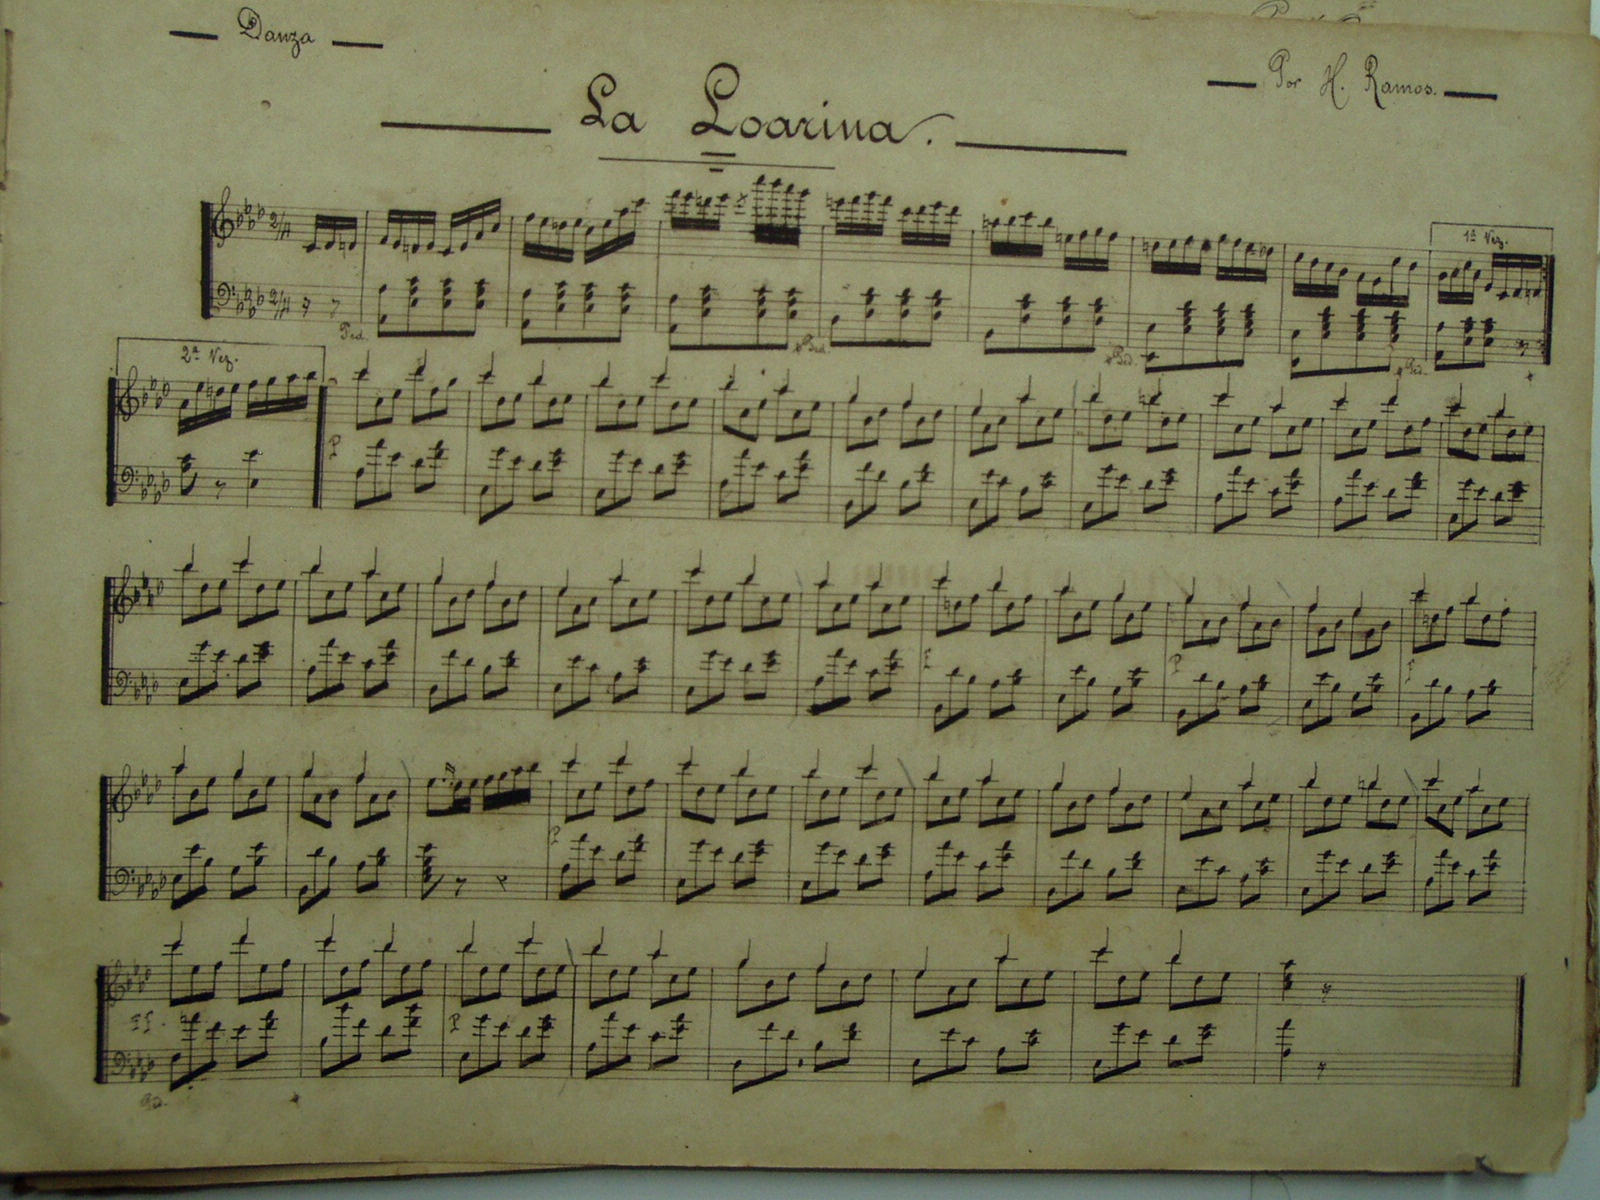 Danza
Por H. Ramos.
La Loarina.
2/4
2/4
1ª Vez.
Ped.
Ped.
Ped.
Ped.
2ª Vez.
P
f
P
f
P
ff.
P